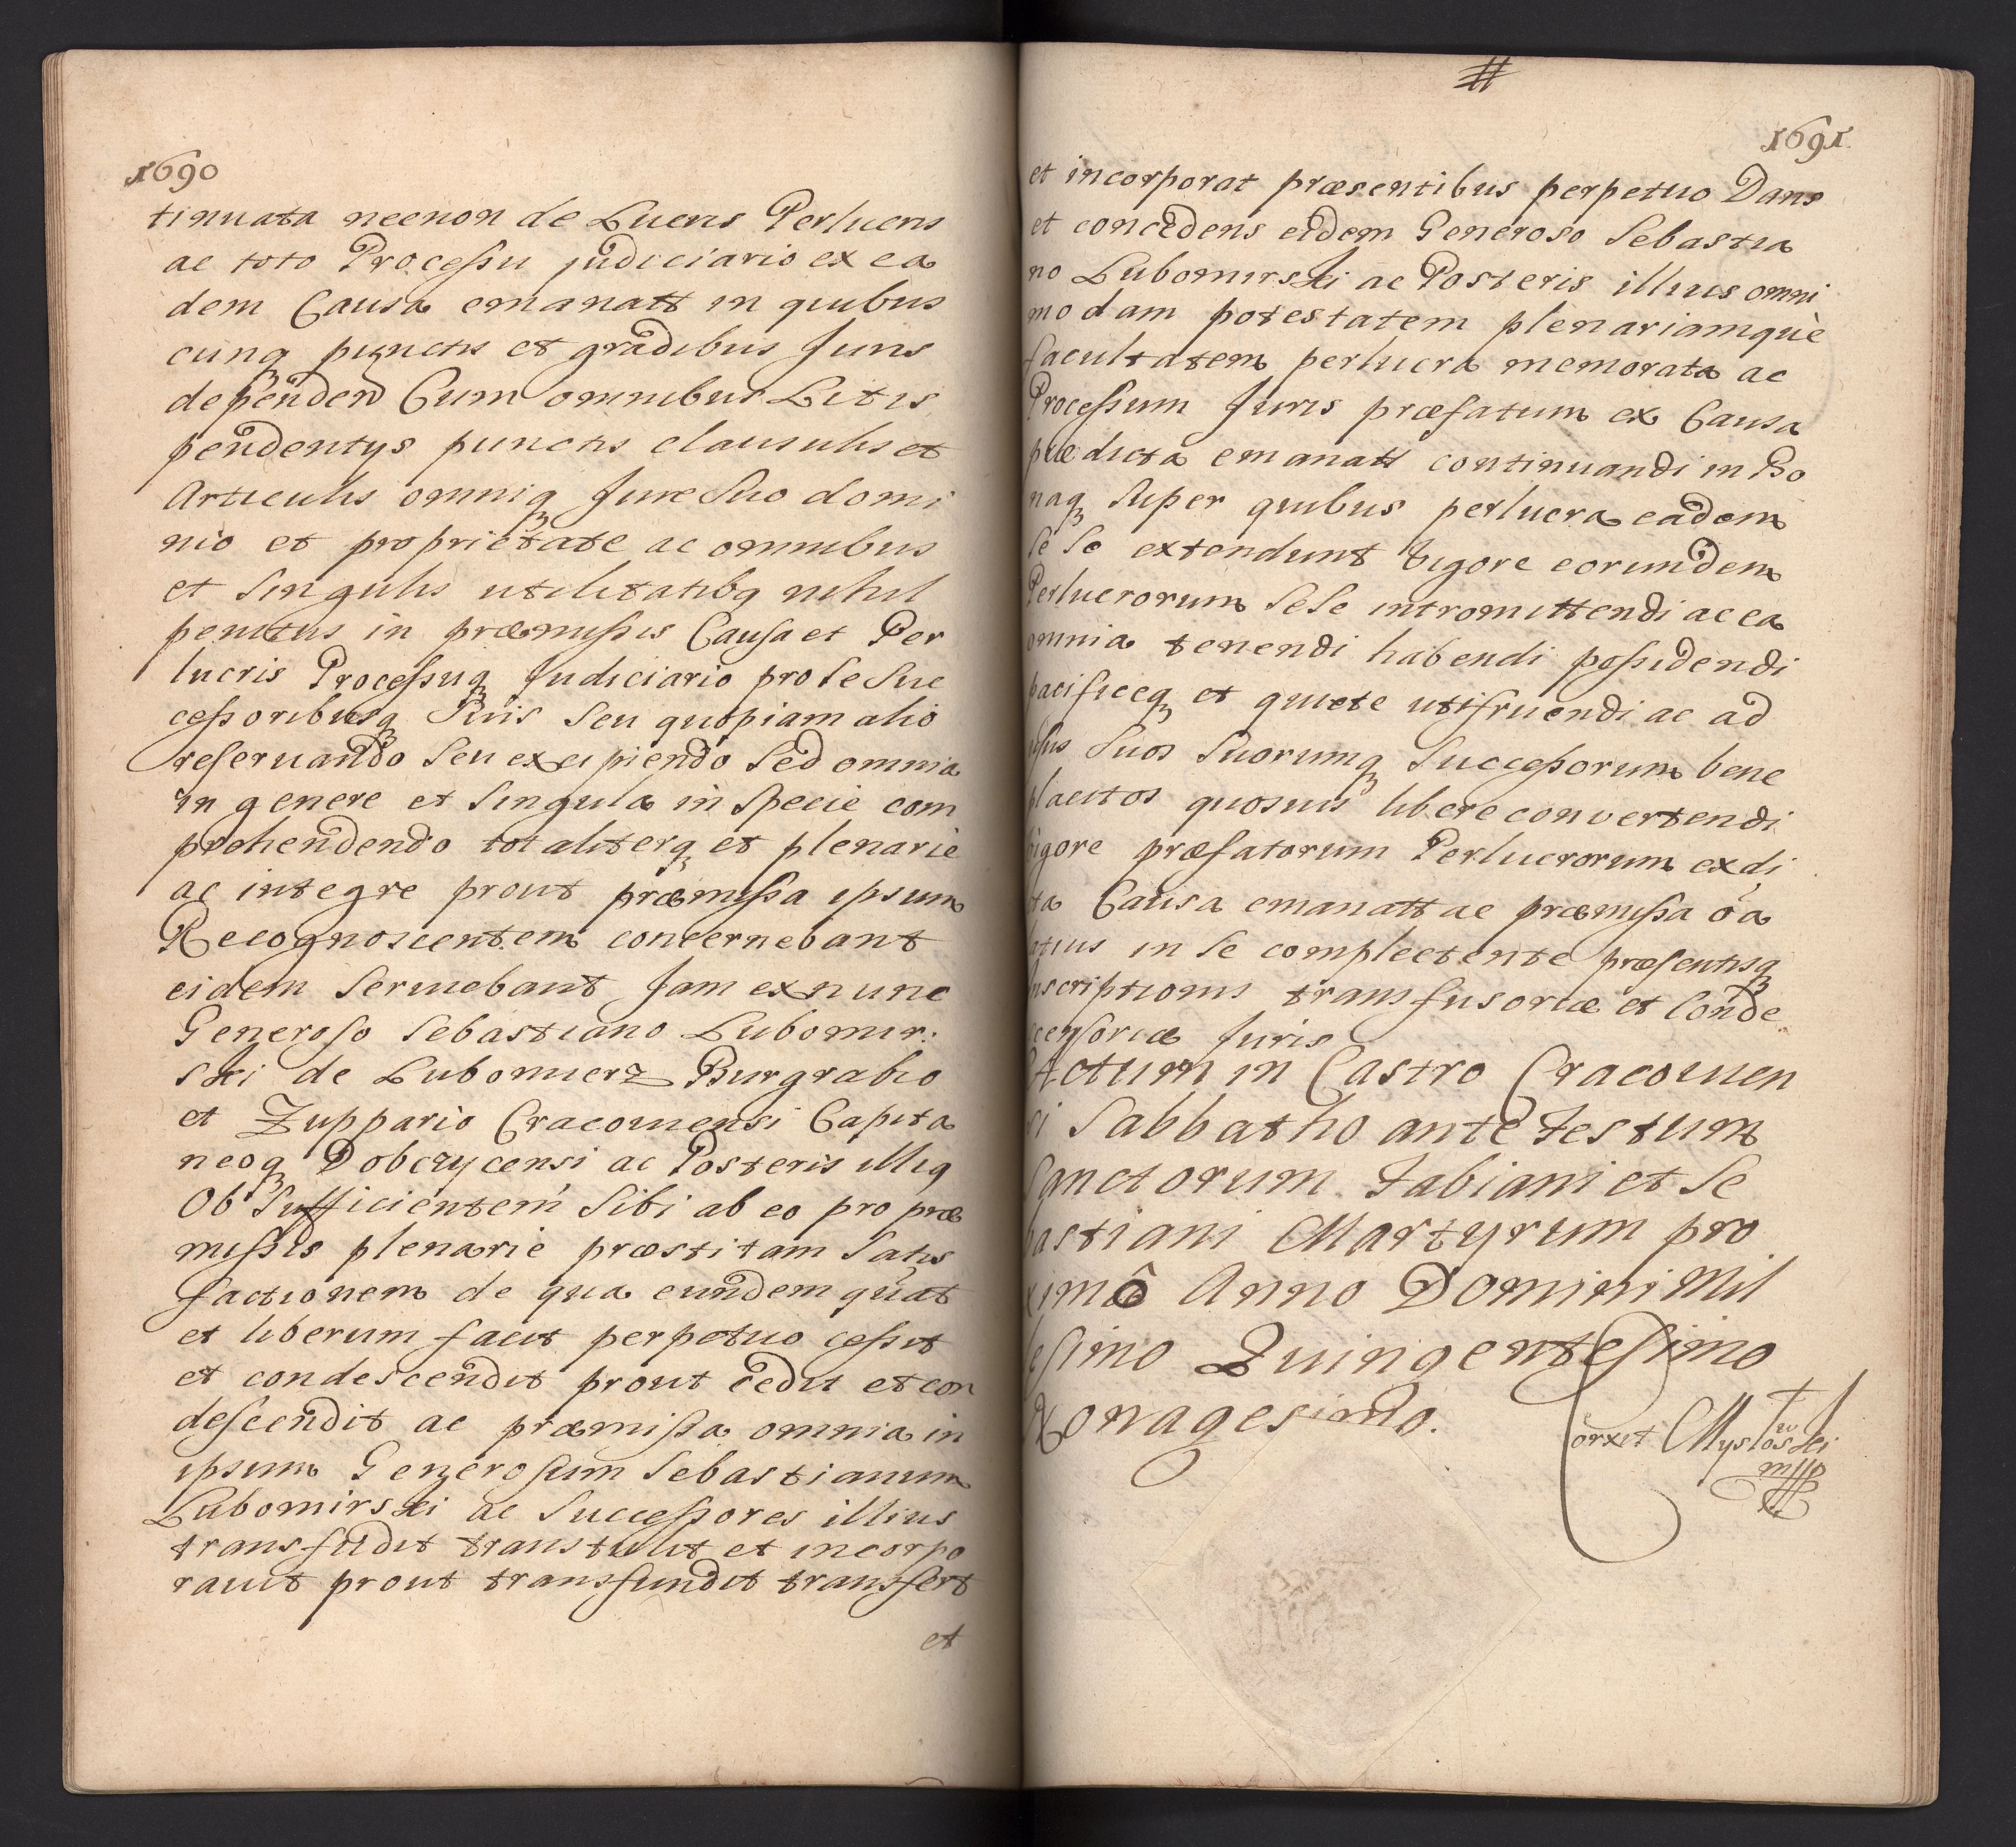 1690
tinuata necnon de Lucris Perlucris
ac toto Processu judiciario ex ea
dem Causa emanatt in quibus
cunq punctis et gradibus Juris
dependen Cum omnibus Litis
pendentys punctis clausulis et
Articulis omniq Jure Suo domi
nio et proprietate ac omnibus
et Singulis utilitatibq nihil
penitus in præmissis Causa et Per
lucris Processuq Judiciario pro se Suc
cessoribusq Suis Seu quopiam alio
reseruando Seu excipiendo Sed omnia
in genere et Singula in Specie com
prehendendo totaliterq et plenarie
ac integre prout præmissa ipsum
Recognoscentem concernebant
eidem Seruiebant Jam ex nunc
Generoso Sebastiano Lubomir:
ski de Lubomierz Burgrabio
et Zuppario Cracouiensi Capita
neoq Dobczycensi ac Posteris illiq
Ob Sufficientem Sibi ab eo pro præ
missis plenarie præstitam Satis
factionem de qua eundem quat
et liberum facit perpetuo cessit
et condescendit prout cedit et con
descendit ac præmissa omnia in
ipsum Generosum Sebastianum
Lubomirski ac Successores illius
transfudit transtulit et incorpo
rauit prout transfundit transfert
et
1691
et incorporat præsentibus perpetuo Dans
et concedens eidem Generoso Sebastia
no Lubomirski ac Posteris illius omni
modam potestatem plenariamquè
facultatem perlucra memorata ac
Processum Juris præfatum ex Causa
prædicta emanatt continuandi in Bo
naq Super quibus perlucra eadem
se se extendunt Vigore eorundem
Perlucrorum Sese intromittendi ac ea
omnia tenendi habendi possidendi
pacificeq et quiete utifruendi ac ad
usus Suos Suorumq Successorum bene
placitos quosuis libere convertendi
Vigore præfatorum Perlucrorum ex di
cta Causa emanatt ac præmissa oa
latius in Se complectente præsentisq
Inscriptionis transfusoriæ et Conde
scensoriæ Juris
Actum in Castro Cracouien
si Sabbatho ante Festum
Sanctorum Fabiani et Se
bastiani Martyrum pro
ximô Anno Domini Mil
lesimo Quingentesimo
Nonagesimo.